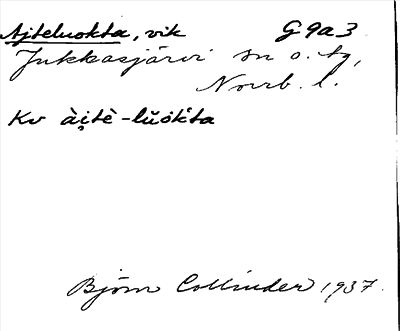 Ajteluokta, vik G9a3
Jukkasjärvi sn o. tg,
Norrb. l.
Kv àịtè-lŭòḱta
Björn Collinder 1937.